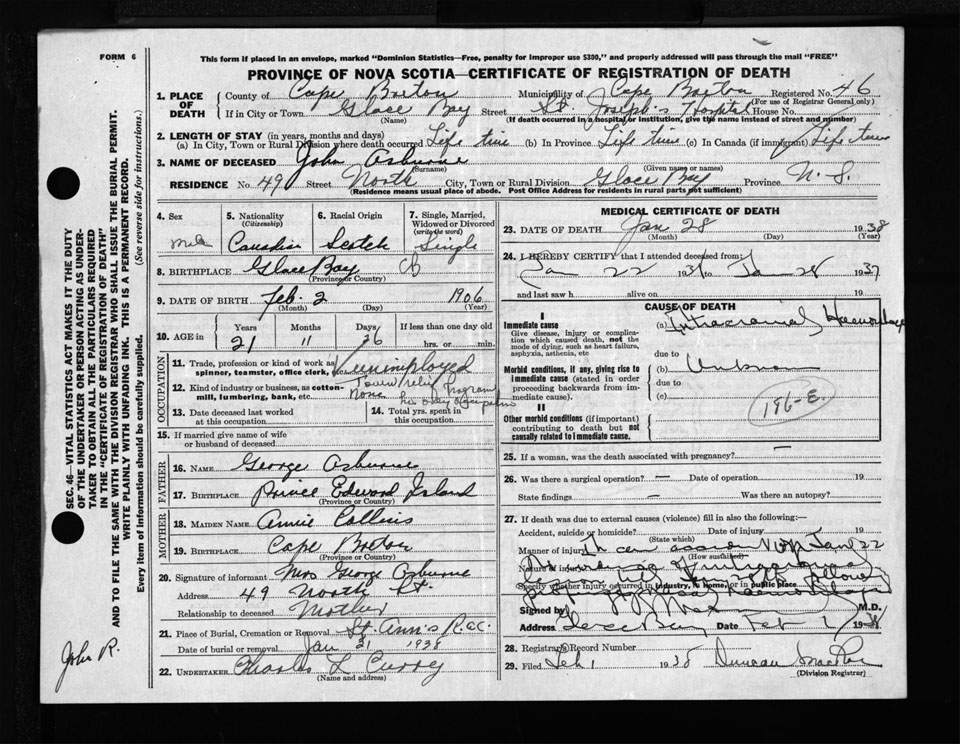 FORM 6
This form if placed in an envelope, marked "Dominion Statistics—Free, penalty for improper use $300," and properly addressed will pass through the mail "FREE"
PROVINCE OF NOVA SCOTIA—CERTIFICATE OF REGISTRATION OF DEATH
1. PLACE OF DEATH
County of Cape Breton Municipality of Cape Breton Registered No. 46
(For use of Registrar General only)
If in City or Town Glace Bay Street St. Joseph's Hospital House No.
(Name) (If death occurred in a hospital or institution, give the name instead of street and number)
2. LENGTH OF STAY (in years, months and days)
(a) In City, Town or Rural Division where death occurred Life time (b) In Province Life time (c) In Canada (if immigrant) Life time
3. NAME OF DECEASED John Osburne
(Surname) (Given name or names)
RESIDENCE No. 49 Street North City, Town or Rural Division Glace Bay Province N. S.
(Residence means usual place of abode. Post Office Address for residents in rural parts not sufficient)
4. Sex Male
5. Nationality (Citizenship) Canadian
6. Racial Origin Scotch
7. Single, Married, Widowed or Divorced (write the word) Single
8. BIRTHPLACE Glace Bay CB
(Province or Country)
9. DATE OF BIRTH Feb. 2 1906
(Month) (Day) (Year)
10. AGE in Years Months Days If less than one day old
21 11 26 hrs. or min.
OCCUPATION
11. Trade, profession or kind of work as spinner, teamster, office clerk, etc. unemployed
12. Kind of industry or business, as cotton-mill, lumbering, bank, etc. None
Town relief program
his only occupation
13. Date deceased last worked at this occupation
14. Total yrs. spent in this occupation
15. If married give name of wife or husband of deceased
FATHER
16. NAME George Osburne
17. BIRTHPLACE Prince Edward Island
(Province or Country)
MOTHER
18. MAIDEN NAME Annie Collins
19. BIRTHPLACE Cape Breton
(Province or Country)
20. Signature of informant Mrs George Osburne
Address 49 North St
Relationship to deceased Mother
21. Place of Burial, Cremation or Removal St. Ann's R.C.
Date of burial or removal Jan 31 1938
22. UNDERTAKER Charles L Curry
(Name and address)
MEDICAL CERTIFICATE OF DEATH
23. DATE OF DEATH Jan 28 1938
(Month) (Day) (Year)
24. I HEREBY CERTIFY that I attended deceased from:
Ja 22 1937 to Ja 28 1937
and last saw h alive on 19
CAUSE OF DEATH
I
Immediate cause
Give disease, injury or complication which caused death, not the mode of dying, such as heart failure, asphyxia, asthenia, etc
(a) Intracranial Haemorrhage
due to
Morbid conditions, if any, giving rise to immediate cause (stated in order proceeding backwards from immediate cause).
(b) Unknown
due to
(c)
196-E
II
Other morbid conditions (if important) contributing to death but not causally related to immediate cause.
25. If a woman, was the death associated with pregnancy?
26. Was there a surgical operation? — Date of operation 19
State findings — Was there an autopsy?
27. If death was due to external causes (violence) fill in also the following:—
Accident, suicide or homicide? Date of injury 19
(State which)
Manner of injury
(How sustained)
Jan 22
Nature of injury
Specify whether injury occurred in industry, in home, or in public place
Signed by M.D.
Address Glace Bay Date Feb 1/1938
28. Registrar's Record Number
29. Filed Feb 1 1938 Duncan
(Division Registrar)
SEC. 46—VITAL STATISTICS ACT MAKES IT THE DUTY OF THE UNDERTAKER OR PERSON ACTING AS UNDERTAKER TO OBTAIN ALL THE PARTICULARS REQUIRED IN THE "CERTIFICATE OF REGISTRATION OF DEATH" AND TO FILE THE SAME WITH THE DIVISION REGISTRAR WHO SHALL ISSUE THE BURIAL PERMIT.
WRITE PLAINLY WITH UNFADING INK. THIS IS A PERMANENT RECORD.
Every item of information should be carefully supplied. (See reverse side for instructions.)
John R.